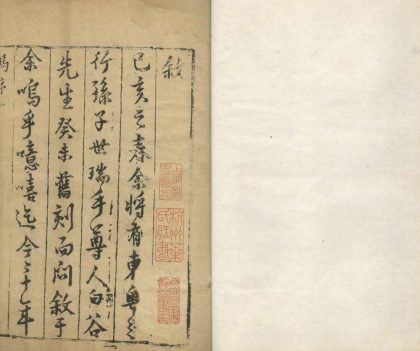 敘
己亥之春余將有東粵之
行孫子世瑞手尊人白谷
先生癸未舊刻而問敘于
余嗚乎噫嘻迄今三十年
馮序一